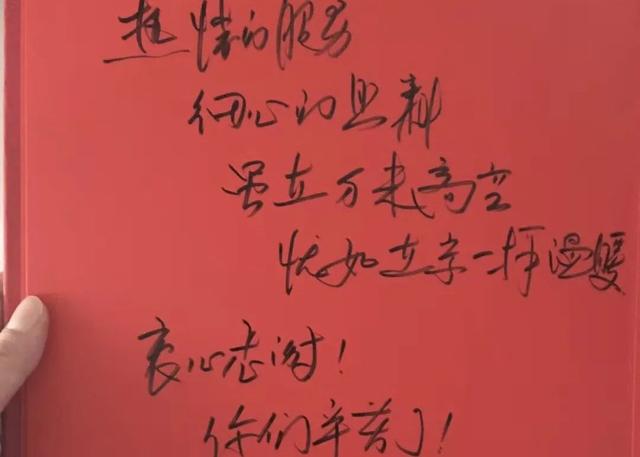 热情的服务
细心的照料
虽在万米高空
恍如在家一样温暖
衷心志谢！
你们辛苦了！